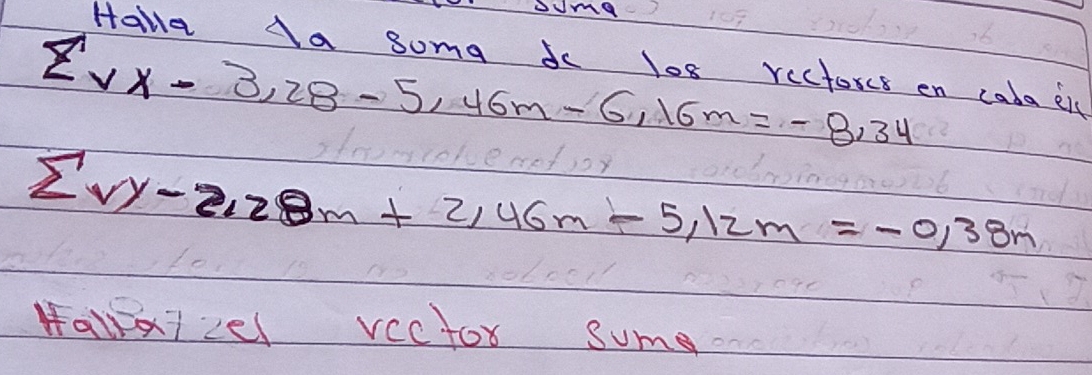 suma
Halla la suma de los vectores en cada eje
Σvx - 3,28 - 5,46m - 6,16m = - 8,34
Σvy - 2,28m + 2,46m - 5,12m = - 0,38m
Halla el vector suma